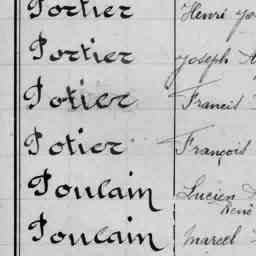 Portier Henri
Portier Joseph
Potier Francis
Potier François
Poulain Lucien
René
Poulain Marcel